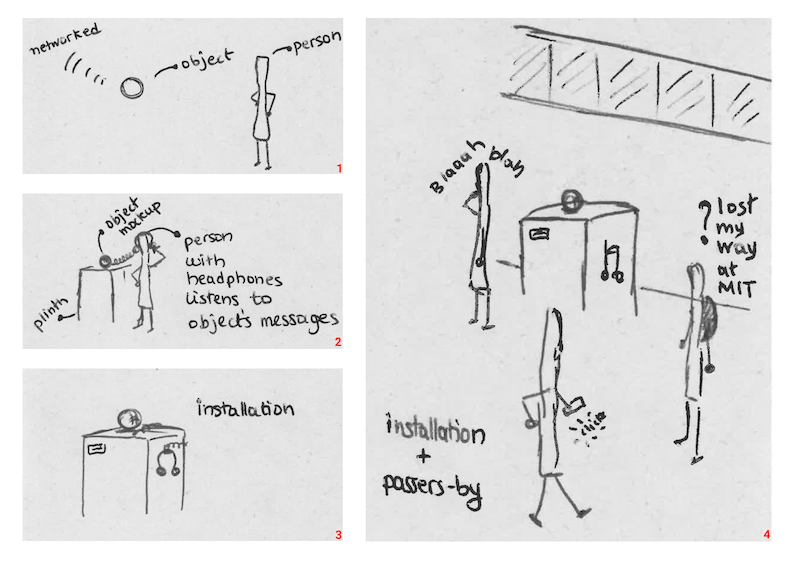 networked
object
person
1
object
mockup
person
with
headphones
listens to
object's messages
plinth
2
installation
3
Blaaah blah
? lost
my
way
at
MIT
click
installation
+
passers-by
4